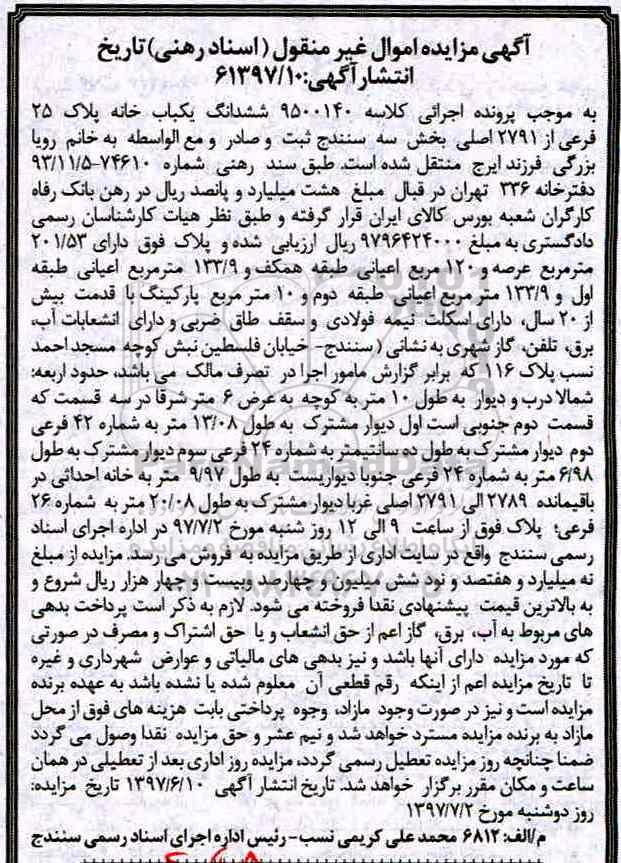 آگهی مزایده اموال غیر منقول (اسناد رهنی) تاریخ
انتشار آگهی: ۶۱۳۹۷/۱۰
به موجب پرونده اجرائی کلاسه ۹۵۰۰۱۴۰ ششدانگ یکباب خانه پلاک ۲۵
فرعی از ۲۷۹۱ اصلی بخش سه سنندج ثبت و صادر و مع الواسطه به خانم رویا
بزرگی فرزند ایرج منتقل شده است. طبق سند رهنی شماره ۷۴۶۱۰-۹۳/۱۱/۵
دفترخانه ۳۳۶ تهران در قبال مبلغ هشت میلیارد و پانصد ریال در رهن بانک رفاه
کارگران شعبه بورس کالای ایران قرار گرفته و طبق نظر هیات کارشناسان رسمی
دادگستری به مبلغ ۹۷۹۶۴۲۴۰۰۰ ریال ارزیابی شده و پلاک فوق دارای ۲۰۱/۵۳
مترمربع عرصه و ۱۲۰ مربع اعیانی طبقه همکف و ۱۳۳/۹ مترمربع اعیانی طبقه
اول و ۱۳۳/۹ متر مربع اعیانی طبقه دوم و ۱۰ متر مربع پارکینگ با قدمت بیش
از ۲۰ سال، دارای اسکلت نیمه فولادی و سقف طاق ضربی و دارای انشعابات آب،
برق، تلفن، گاز شهری به نشانی (سنندج- خیابان فلسطین نبش کوچه مسجد احمد
نسب پلاک ۱۱۶ که برابر گزارش مامور اجرا در تصرف مالک می باشد، حدود اربعه:
شمالا درب و دیوار به طول ۱۰ متر به کوچه به عرض ۶ متر شرقا در سه قسمت که
قسمت دوم جنوبی است اول دیوار مشترک به طول ۱۳/۰۸ متر به شماره ۴۲ فرعی
دوم دیوار مشترک به طول ده سانتیمتر به شماره ۲۴ فرعی سوم دیوار مشترک به طول
۶/۹۸ متر به شماره ۲۴ فرعی جنوبا دیواریست به طول ۹/۹۷ متر به خانه احداثی در
باقیمانده ۲۷۸۹ الی ۲۷۹۱ اصلی غربا دیوار مشترک به طول ۲۰/۰۸ متر به شماره ۲۶
فرعی؛ پلاک فوق از ساعت ۹ الی ۱۲ روز شنبه مورخ ۹۷/۷/۲ در اداره اجرای اسناد
رسمی سنندج واقع در سایت اداری از طریق مزایده به فروش می رسد. مزایده از مبلغ
نه میلیارد و هفتصد و نود شش میلیون و چهارصد وبیست و چهار هزار ریال شروع و
به بالاترین قیمت پیشنهادی نقدا فروخته می شود. لازم به ذکر است پرداخت بدهی
های مربوط به آب، برق، گاز اعم از حق انشعاب و یا حق اشتراک و مصرف در صورتی
که مورد مزایده دارای آنها باشد و نیز بدهی های مالیاتی و عوارض شهرداری و غیره
تا تاریخ مزایده اعم از اینکه رقم قطعی آن معلوم شده یا نشده باشد به عهده برنده
مزایده است و نیز در صورت وجود مازاد، وجوه پرداختی بابت هزینه های فوق از محل
مازاد به برنده مزایده مسترد خواهد شد و نیم عشر و حق مزایده نقدا وصول می گردد
ضمنا چنانچه روز مزایده تعطیل رسمی گردد، مزایده روز اداری بعد از تعطیلی در همان
ساعت و مکان مقرر برگزار خواهد شد. تاریخ انتشار آگهی ۱۳۹۷/۶/۱۰ تاریخ مزایده:
روز دوشنبه مورخ ۱۳۹۷/۷/۲
م/الف: ۶۸۱۲ محمد علی کریمی نسب- رئیس اداره اجرای اسناد رسمی سنندج